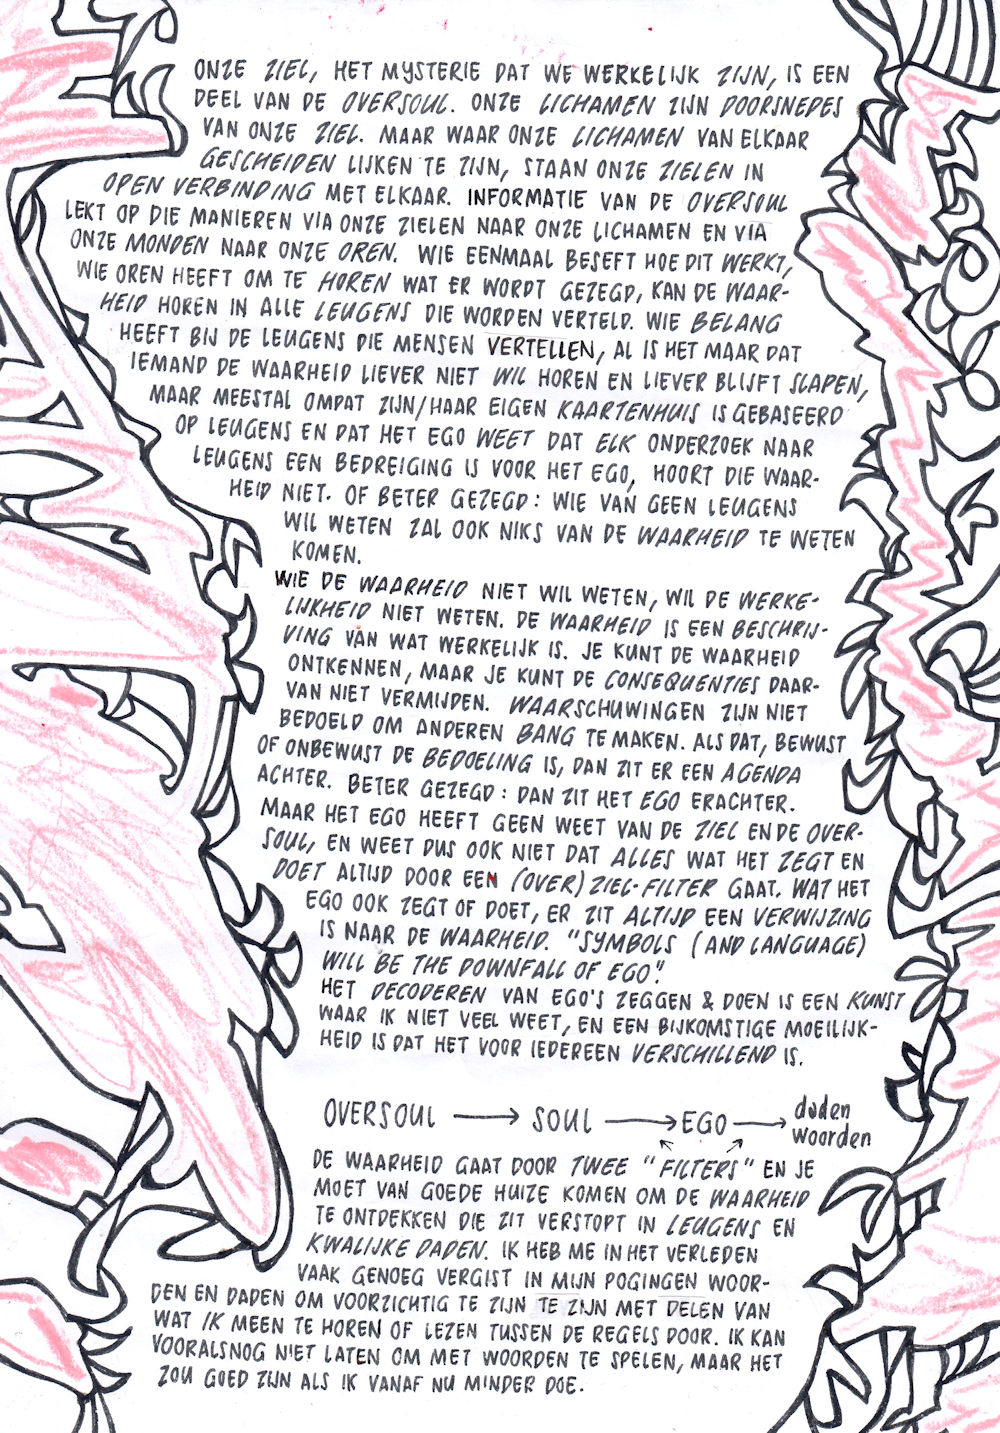 ONZE ZIEL, HET MYSTERIE DAT WE WERKELIJK ZIJN, IS EEN
DEEL VAN DE OVERSOUL. ONZE LICHAMEN ZIJN DOORSNEDES
VAN ONZE ZIEL. MAAR WAAR ONZE LICHAMEN VAN ELKAAR
GESCHEIDEN LIJKEN TE ZIJN, STAAN ONZE ZIELEN IN
OPEN VERBINDING MET ELKAAR. INFORMATIE VAN DE OVERSOUL
LEKT OP DIE MANIEREN VIA ONZE ZIELEN NAAR ONZE LICHAMEN EN VIA
ONZE MONDEN NAAR ONZE OREN. WIE EENMAAL BESEFT HOE DIT WERKT,
WIE OREN HEEFT OM TE HOREN WAT ER WORDT GEZEGD, KAN DE WAAR-
HEID HOREN IN ALLE LEUGENS DIE WORDEN VERTELD. WIE BELANG
HEEFT BIJ DE LEUGENS DIE MENSEN VERTELLEN, AL IS HET MAAR DAT
IEMAND DE WAARHEID LIEVER NIET WIL HOREN EN LIEVER BLIJFT SLAPEN,
MAAR MEESTAL OMDAT ZIJN/HAAR EIGEN KAARTENHUIS IS GEBASEERD
OP LEUGENS EN DAT HET EGO WEET DAT ELK ONDERZOEK NAAR
LEUGENS EEN BEDREIGING IS VOOR HET EGO, HOORT DIE WAAR-
HEID NIET. OF BETER GEZEGD: WIE VAN GEEN LEUGENS
WIL WETEN ZAL OOK NIKS VAN DE WAARHEID TE WETEN
KOMEN.
WIE DE WAARHEID NIET WIL WETEN, WIL DE WERKE-
LIJKHEID NIET WETEN. DE WAARHEID IS EEN BESCHRIJ-
VING VAN WAT WERKELIJK IS. JE KUNT DE WAARHEID
ONTKENNEN, MAAR JE KUNT DE CONSEQUENTIES DAAR-
VAN NIET VERMIJDEN. WAARSCHUWINGEN ZIJN NIET
BEDOELD OM ANDEREN BANG TE MAKEN. ALS DAT, BEWUST
OF ONBEWUST DE BEDOELING IS, DAN ZIT ER EEN AGENDA
ACHTER. BETER GEZEGD: DAN ZIT HET EGO ERACHTER.
MAAR HET EGO HEEFT GEEN WEET VAN DE ZIEL EN DE OVER-
SOUL, EN WEET DUS OOK NIET DAT ALLES WAT HET ZEGT EN
DOET ALTIJD DOOR EEN (OVER)ZIEL-FILTER GAAT. WAT HET
EGO OOK ZEGT OF DOET, ER ZIT ALTIJD EEN VERWIJZING
IS NAAR DE WAARHEID. "SYMBOLS (AND LANGUAGE)
WILL BE THE DOWNFALL OF EGO".
HET DECODEREN VAN EGO'S ZEGGEN & DOEN IS EEN KUNST
WAAR IK NIET VEEL WEET, EN EEN BIJKOMSTIGE MOEILIJK-
HEID IS DAT HET VOOR IEDEREEN VERSCHILLEND IS.
OVERSOUL → SOUL → EGO → daden
woorden
DE WAARHEID GAAT DOOR TWEE "FILTERS" EN JE
MOET VAN GOEDE HUIZE KOMEN OM DE WAARHEID
TE ONTDEKKEN DIE ZIT VERSTOPT IN LEUGENS EN
KWALIJKE DADEN. IK HEB ME IN HET VERLEDEN
VAAK GENOEG VERGIST IN MIJN POGINGEN WOOR-
DEN EN DADEN OM VOORZICHTIG TE ZIJN TE ZIJN MET DELEN VAN
WAT IK MEEN TE HOREN OF LEZEN TUSSEN DE REGELS DOOR. IK KAN
VOORALSNOG NIET LATEN OM MET WOORDEN TE SPELEN, MAAR HET
ZOU GOED ZIJN ALS IK VANAF NU MINDER DOE.